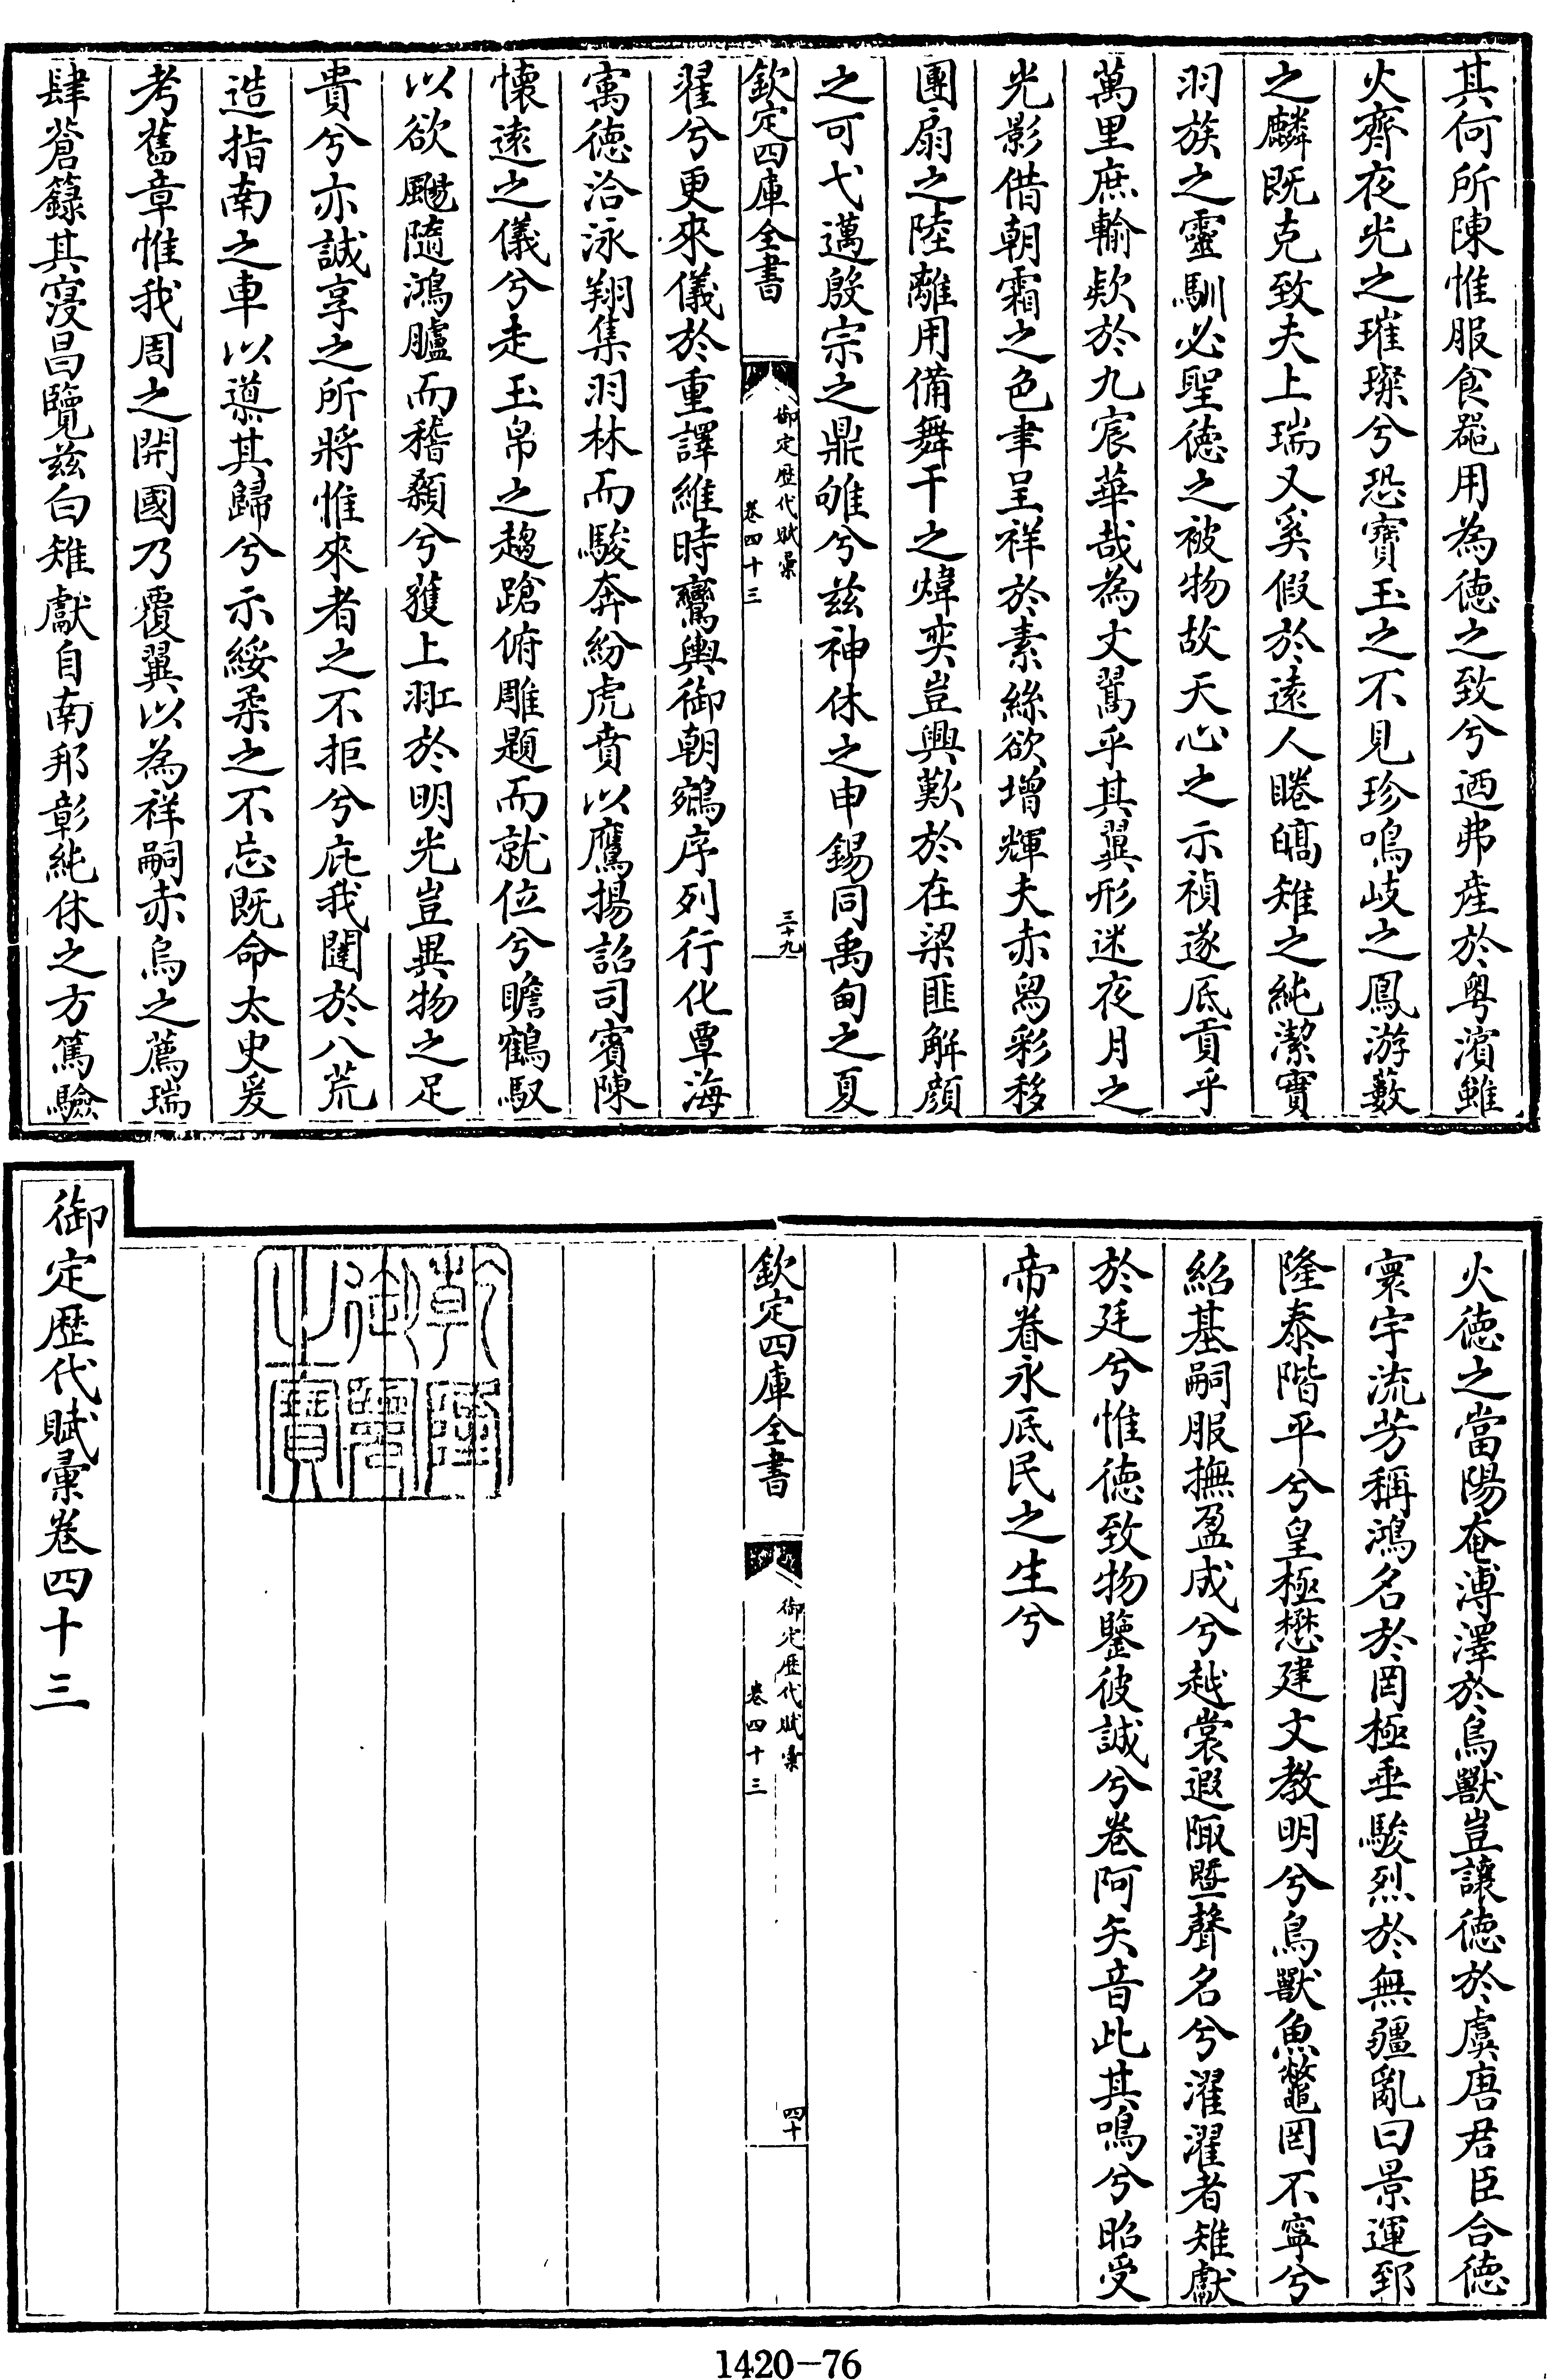 其何所陳惟服食噐用為徳之致兮迺弗産於粤濱雖
火齊夜光之璀璨兮恐寶玉之不見珍鳴岐之鳳游藪
之麟既克致夫上瑞又奚假於遠人睠皜雉之純潔寶
羽族之靈馴必聖徳之被物故天心之示禎遂底貢乎
萬里庶輸欵於九宸華哉為文翯乎其翼形迷夜月之
光影借朝霜之色聿呈祥於素絲欲增輝夫赤舄彩移
團扇之陸離用備舞干之煒奕豈興歎於在梁匪解顔
之可弋邁殷宗之鼎雊兮兹神休之申錫同禹甸之夏
欽定四庫全書
御定歴代賦彚
卷四十三
三十九
翟兮更來儀於重譯維時鸞輿御朝鵷序列行化覃海
寓徳洽泳翔集羽林而駿奔紛虎賁以鷹揚詔司賓陳
懐逺之儀兮走玉帛之趨蹌俯雕題而就位兮瞻鶴馭
以欲颺隨鴻臚而稽顙兮獲上羾於明光豈異物之足
貴兮亦誠享之所將惟來者之不拒兮庇我闥於八荒
造指南之車以導其歸兮示綏柔之不忘既命太史爰
考舊章惟我周之開國乃覆翼以為祥嗣赤烏之薦瑞
肆蒼籙其寖昌覽兹白雉獻自南邦彰純休之方篤驗
火徳之當陽奄溥澤於鳥獸豈讓徳於虞唐君臣合徳
寰宇流芳稱鴻名於罔極垂駿烈於無疆亂曰景運郅
隆泰階平兮皇極懋建文教明兮鳥獸魚鼈罔不寧兮
紹基嗣服撫盈成兮越裳遐陬暨聲名兮濯濯者雉獻
於廷兮惟徳致物鑒彼誠兮卷阿矢音此其鳴兮昭受
帝眷永底民之生兮
欽定四庫全書
御定歴代賦彚
卷四十三
四十
乾隆
御覽
之寶
御定歴代賦彚卷四十三
1420-76